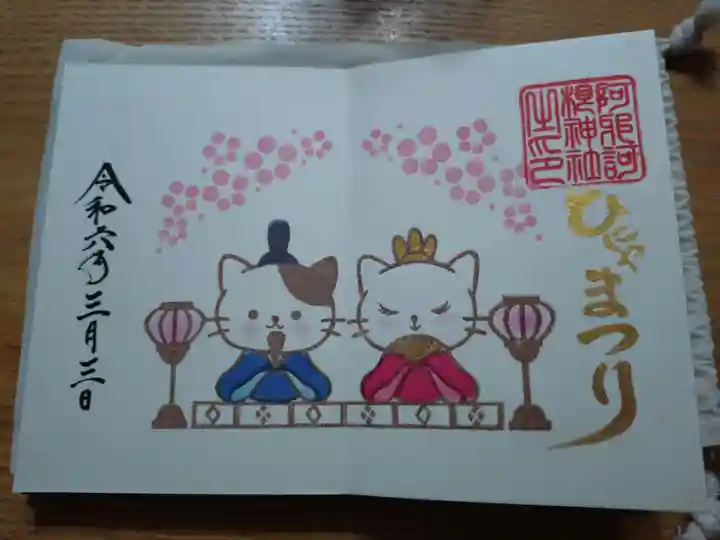 阿邪訶
神社
之印
ひなまつり
令和六年三月三日